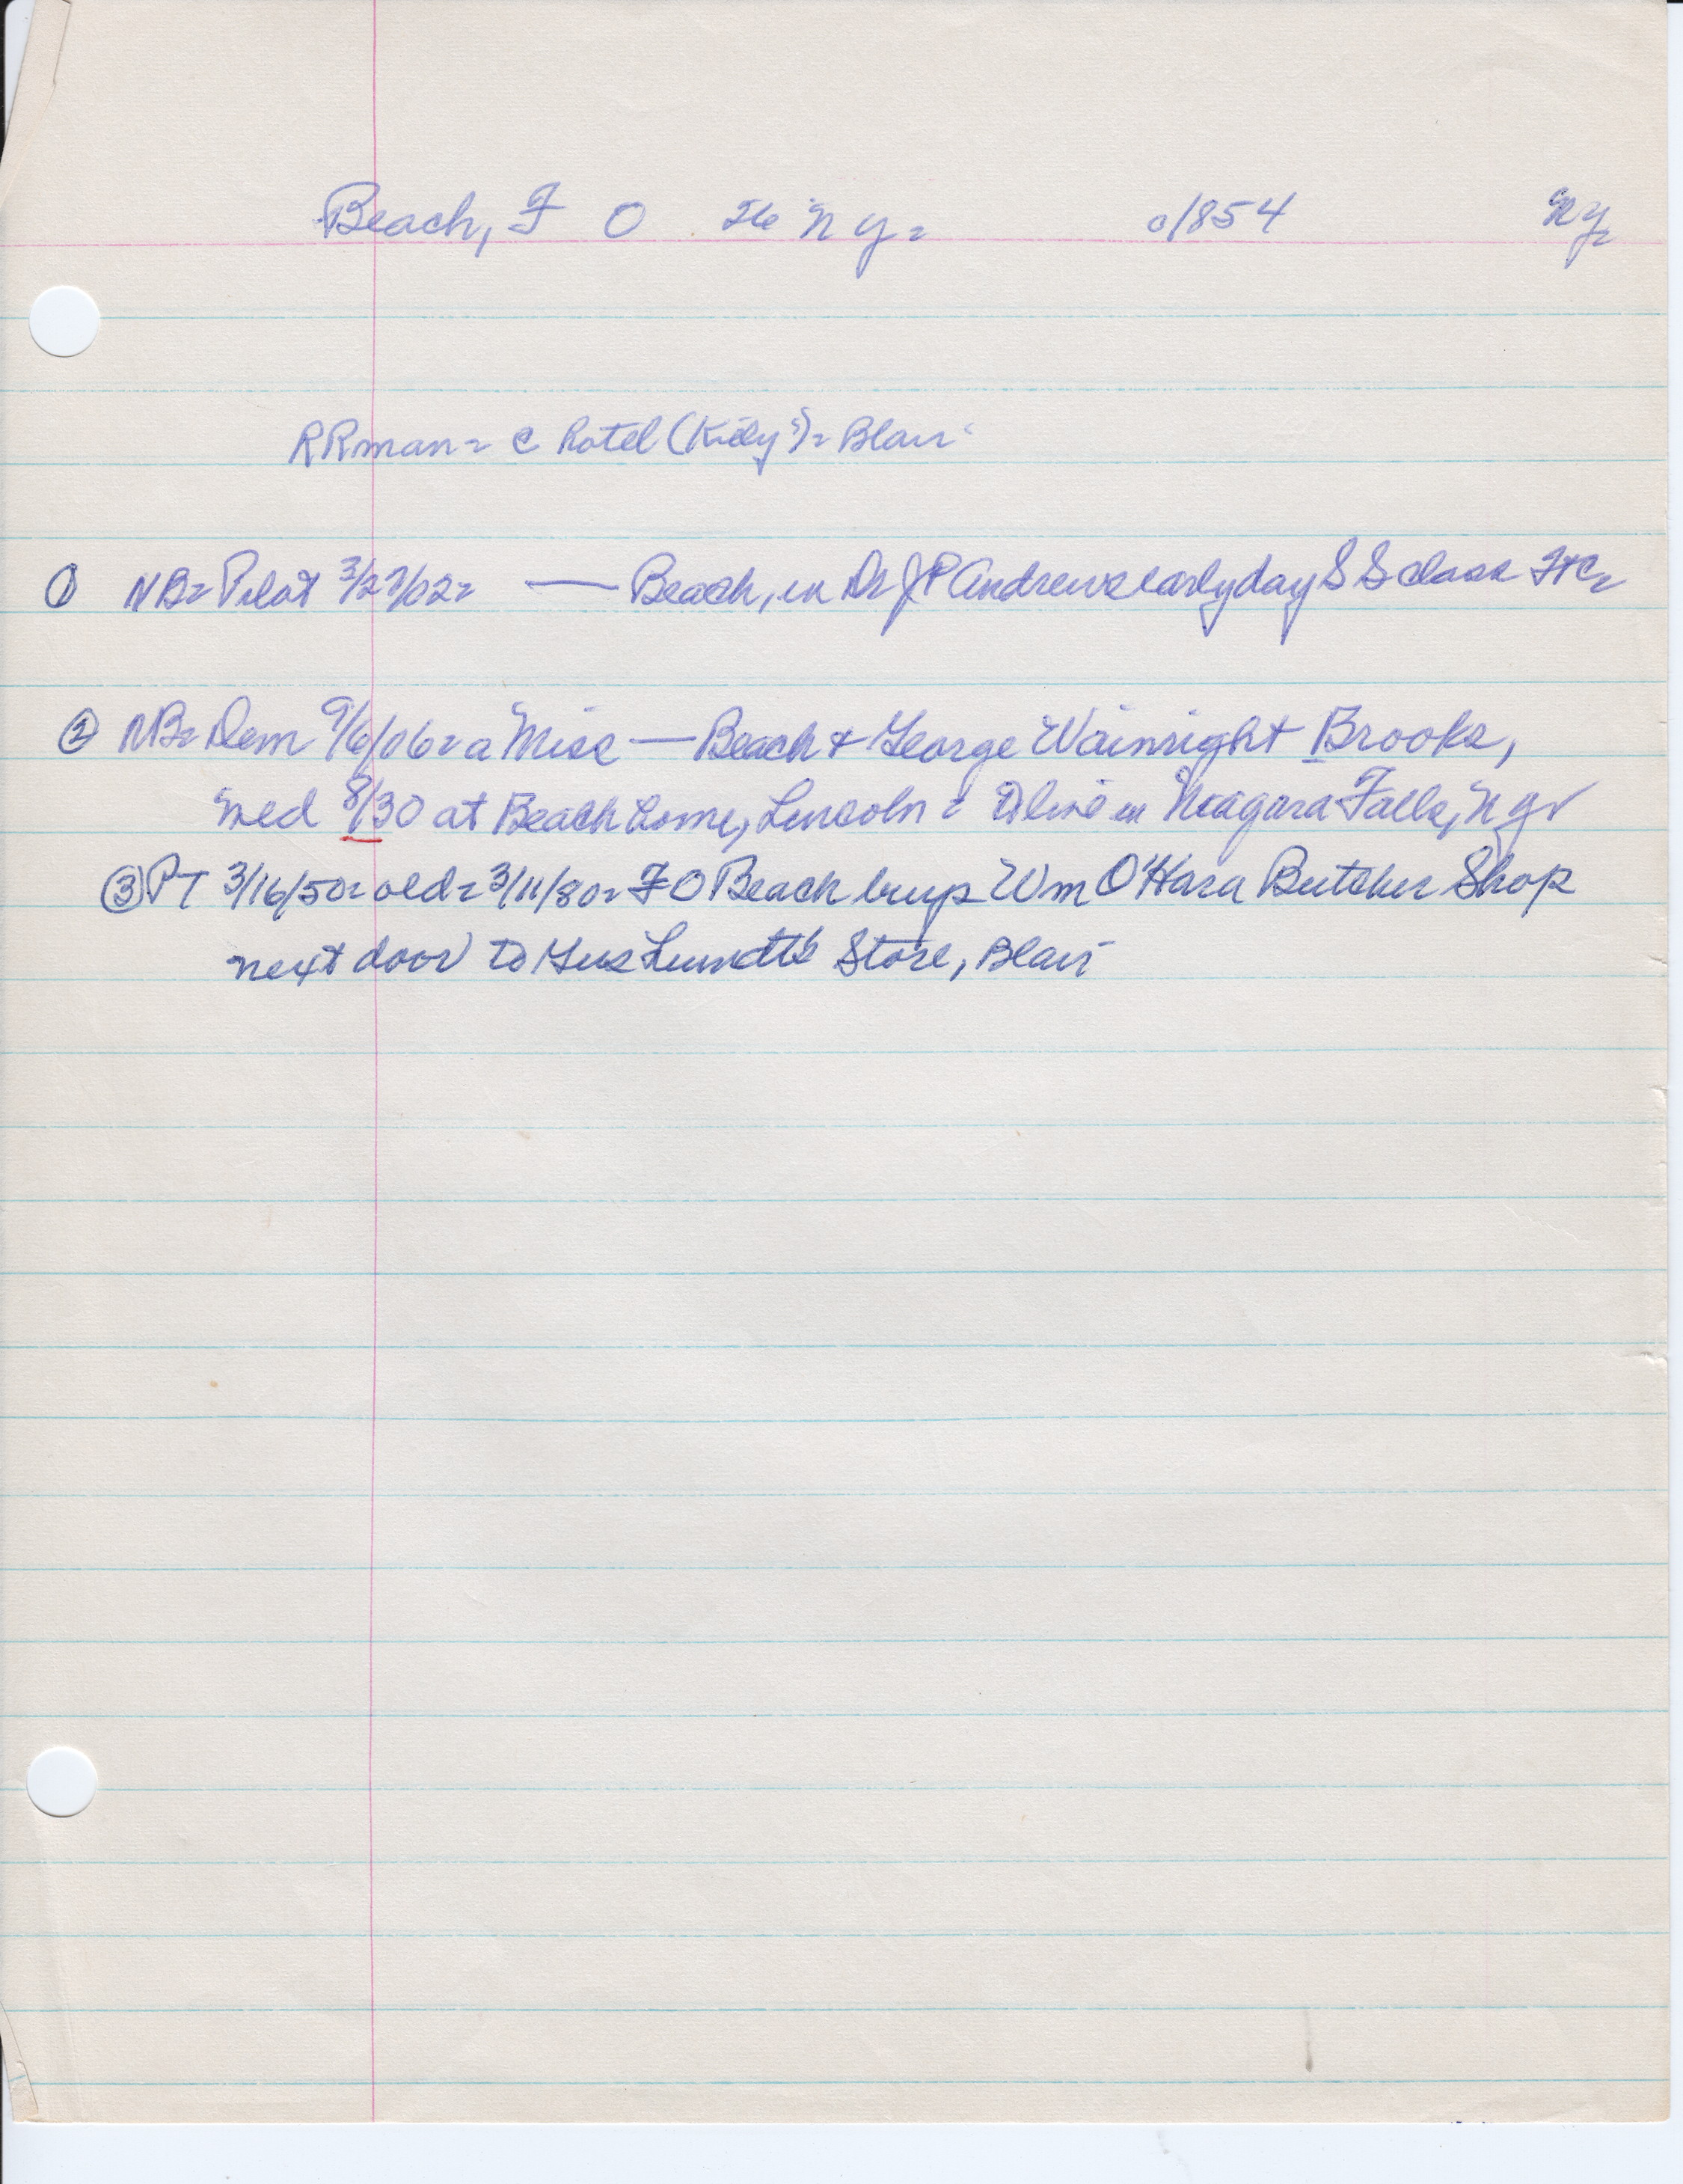 Beach, F O 26 N Y = c/854 NY=
RRman = c hotel (Kiely's) = Blair
① NB= Pilot 3/27/02= — Beach, in Dr J P Andrews early day S S class FtC=
② NB= Dem 9/6/06= a Miss — Beach & George Wainright Brooks,
wed 8/30 at Beach home, Lincoln & live in Niagara Falls, N Y
③ PT 3/16/50= old= 3/11/80= F O Beach buys Wm O'Hara Butcher Shop
next door to Gus Lundt's Store, Blair